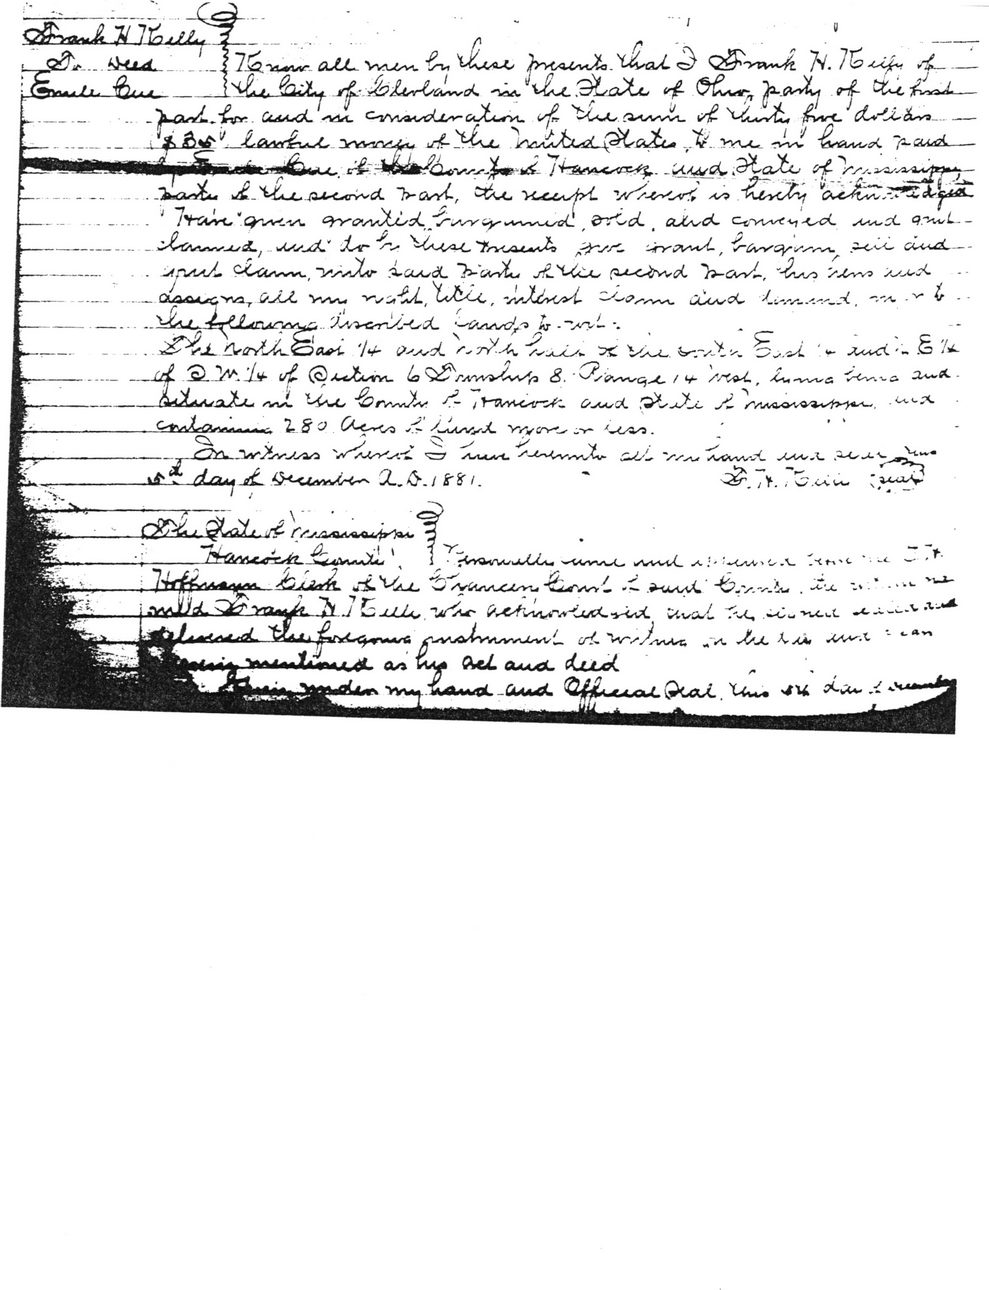 Frank H Kelly
To Deed
Emile Cue
Know all men by these presents that I Frank H. Kelly of
the City of Cleveland in the State of Ohio, party of the first
part for and in consideration of the sum of thirty five dollars
$35 lawful money of the United States, to me in hand paid
by Emile Cue of the County of Hancock and State of Mississippi,
party of the second part, the receipt whereof is hereby acknowledged
Have given granted, bargained, sold, and conveyed and quit
claimed, and do by these presents give grant, bargain, sell and
quit claim, unto said party of the second part, his heirs and
assigns, all my right, title, interest claim and demand, in or to
the following discribed lands to wit:
The North East 1/4 and North half of the South East 1/4 and E 1/4
of S W 1/4 of Section 6 Township 8. Range 14 West, being and
situate in the County of Hancock and State of Mississippi, and
containing 280 Acres of land more or less.
In witness whereof I have hereunto set my hand and seal this
5th day of December A.D. 1881.
F. H. Kelly (seal)
The State of Mississippi
Hancock County
Personally came and appeared before me
Hoffman Clerk of the Chancery Court of said County, the within na
med Frank H. Kelly who acknowledged that he signed sealed and
delivered the foregoing instrument of writing on the day and year
mentioned as his act and deed
Given under my hand and Official Seal, this 5th day of December